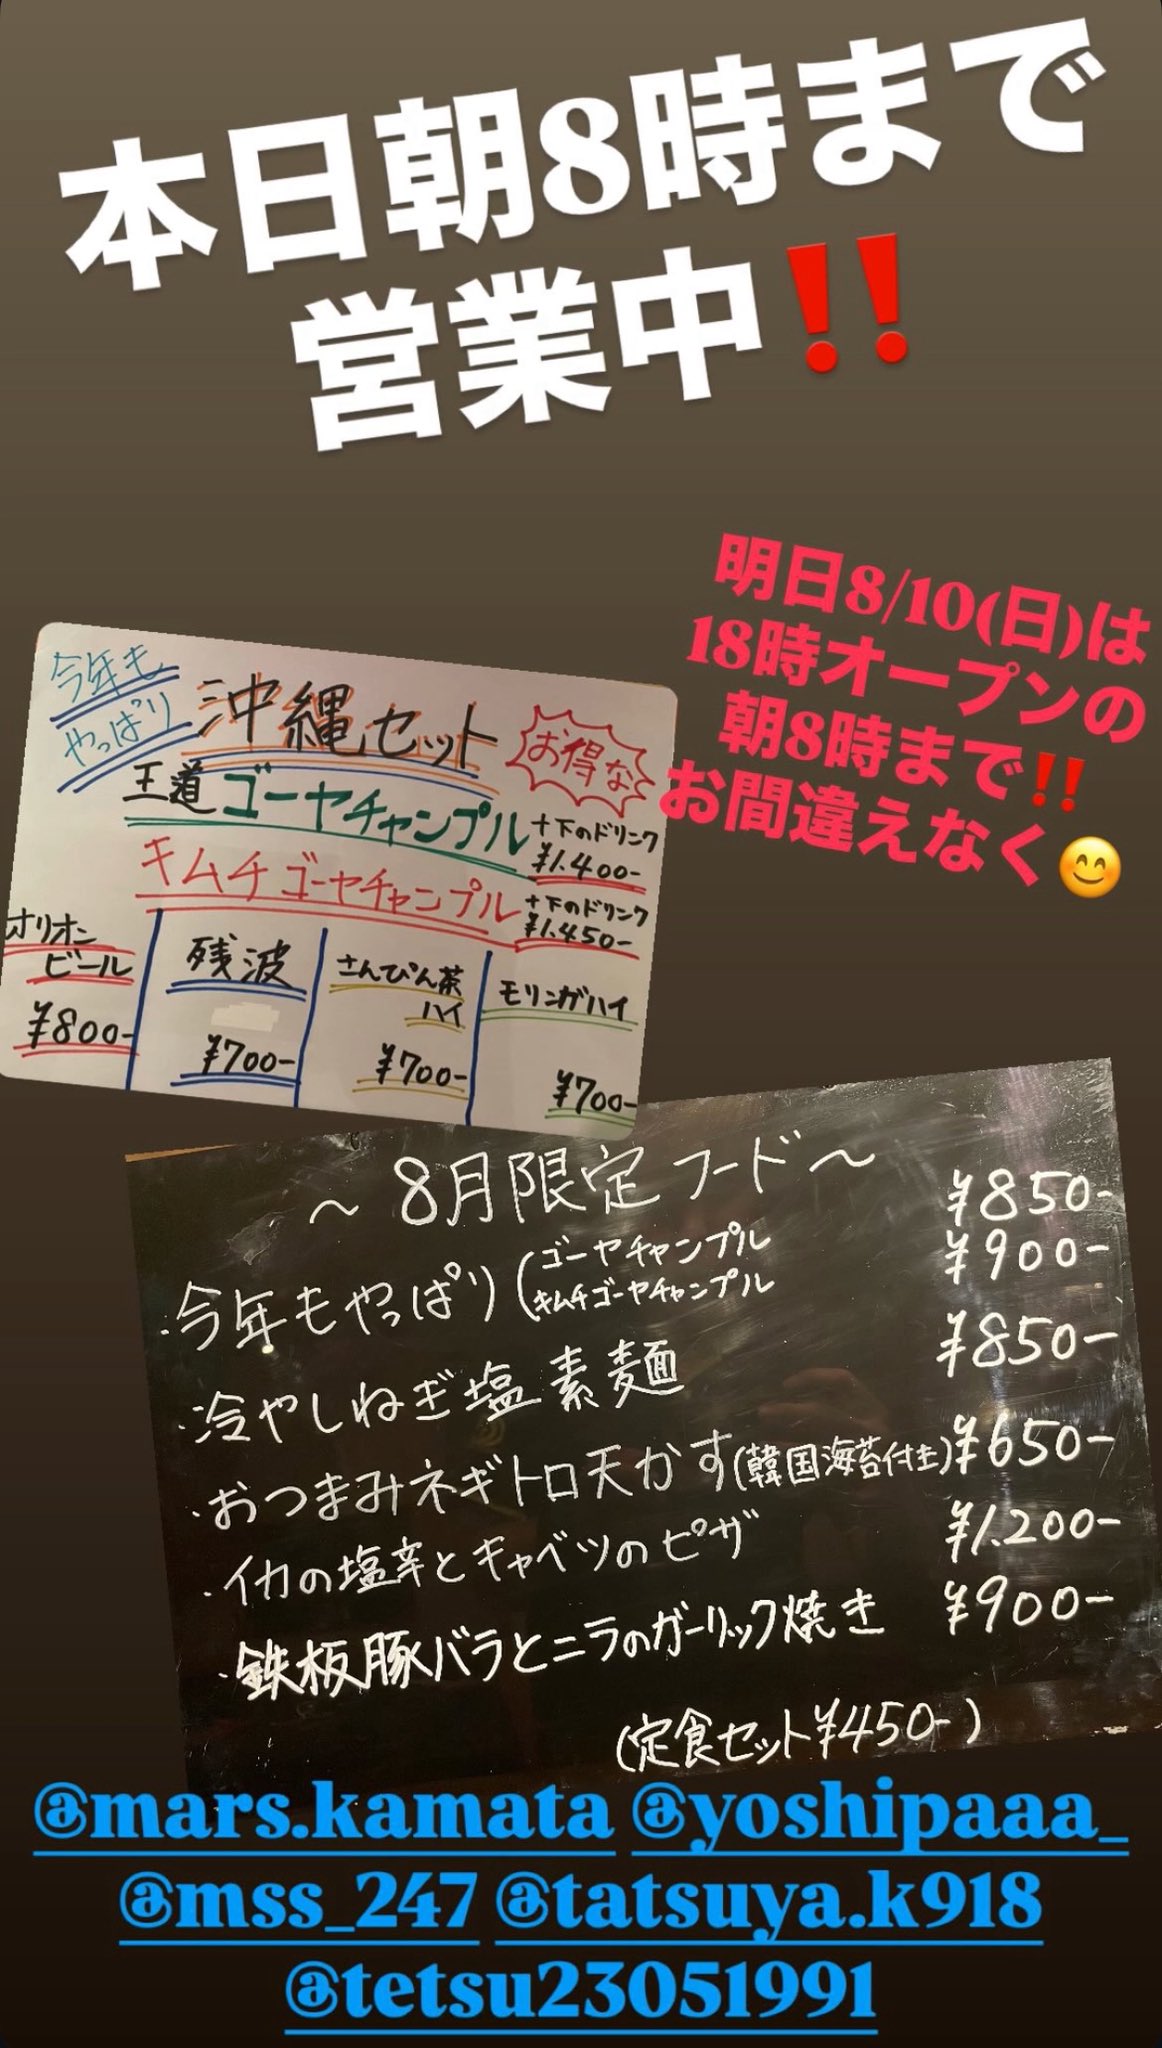 本日朝8時まで
営業中‼️
明日8/10(日)は
18時オープンの
朝8時まで‼️
お間違えなく😊
今年も
やっぱり
沖縄セット
お得な
王道ゴーヤチャンプル
+下のドリンク
¥1.400-
キムチゴーヤチャンプル
+下のドリンク
¥1.450-
オリオン
ビール
¥800-
残波
¥700-
さんぴん茶
ハイ
¥700-
モリンガハイ
¥700-
〜8月限定フード〜
・今年もやっぱり(ゴーヤチャンプル ¥850-
キムチゴーヤチャンプル ¥900-
・冷やしねぎ塩素麺 ¥850-
・おつまみネギトロ天かす(韓国海苔付き) ¥650-
・イカの塩辛とキャベツのピザ ¥1.200-
・鉄板豚バラとニラのガーリック焼き ¥900-
(定食セット¥450-)
@mars.kamata @yoshipaaa_
@mss_247 @tatsuya.k918
@tetsu23051991